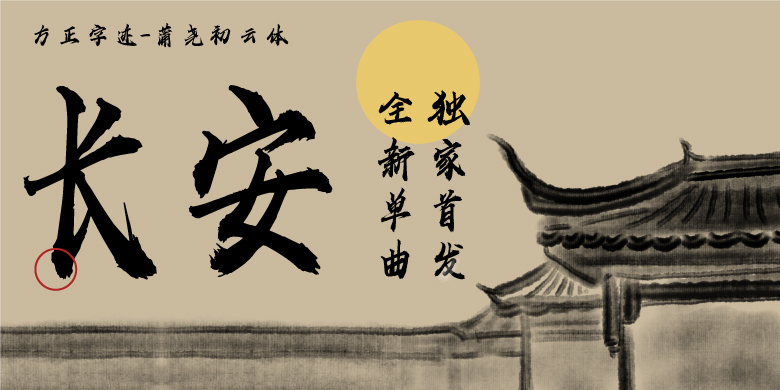 方正字迹-蒲尧初云体
长安
独家首发
全新单曲